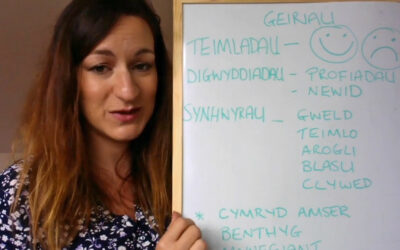 GEIRIAU
TEIMLADAU -
DIGWYDDIADAU - PROFIADAU
- NEWID
SYNHWYRAU - GWELD
TEIMLO
AROGLI
BLASU
CLYWED
* CYMRYD AMSER
BENTHYG